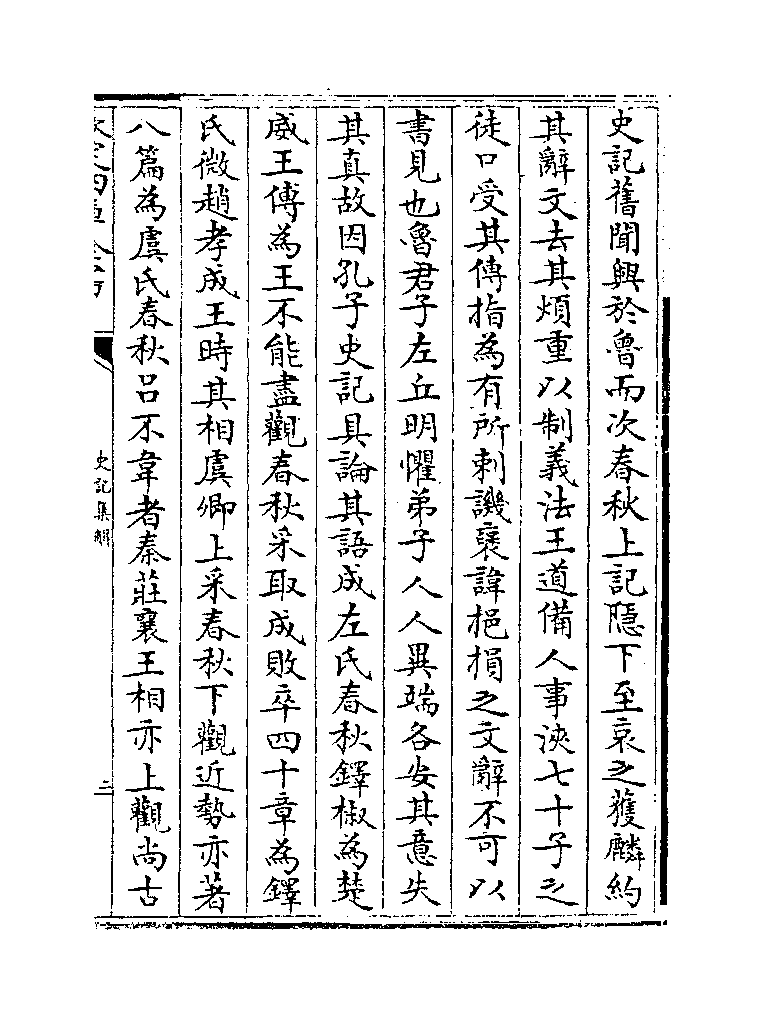 史記舊聞興於魯而次春秋上記隱下至哀之獲麟約
其辭文去其煩重以制義法王道備人事浹七十子之
徒口受其傳指為有所刺譏褒諱挹損之文辭不可以
書見也魯君子左丘明懼弟子人人異端各安其意失
其真故因孔子史記具論其語成左氏春秋鐸椒為楚
威王傅為王不能盡觀春秋采取成敗卒四十章為鐸
氏微趙孝成王時其相虞卿上采春秋下觀近勢亦著
八篇為虞氏春秋呂不韋者秦莊襄王相亦上觀尚古
史記集解